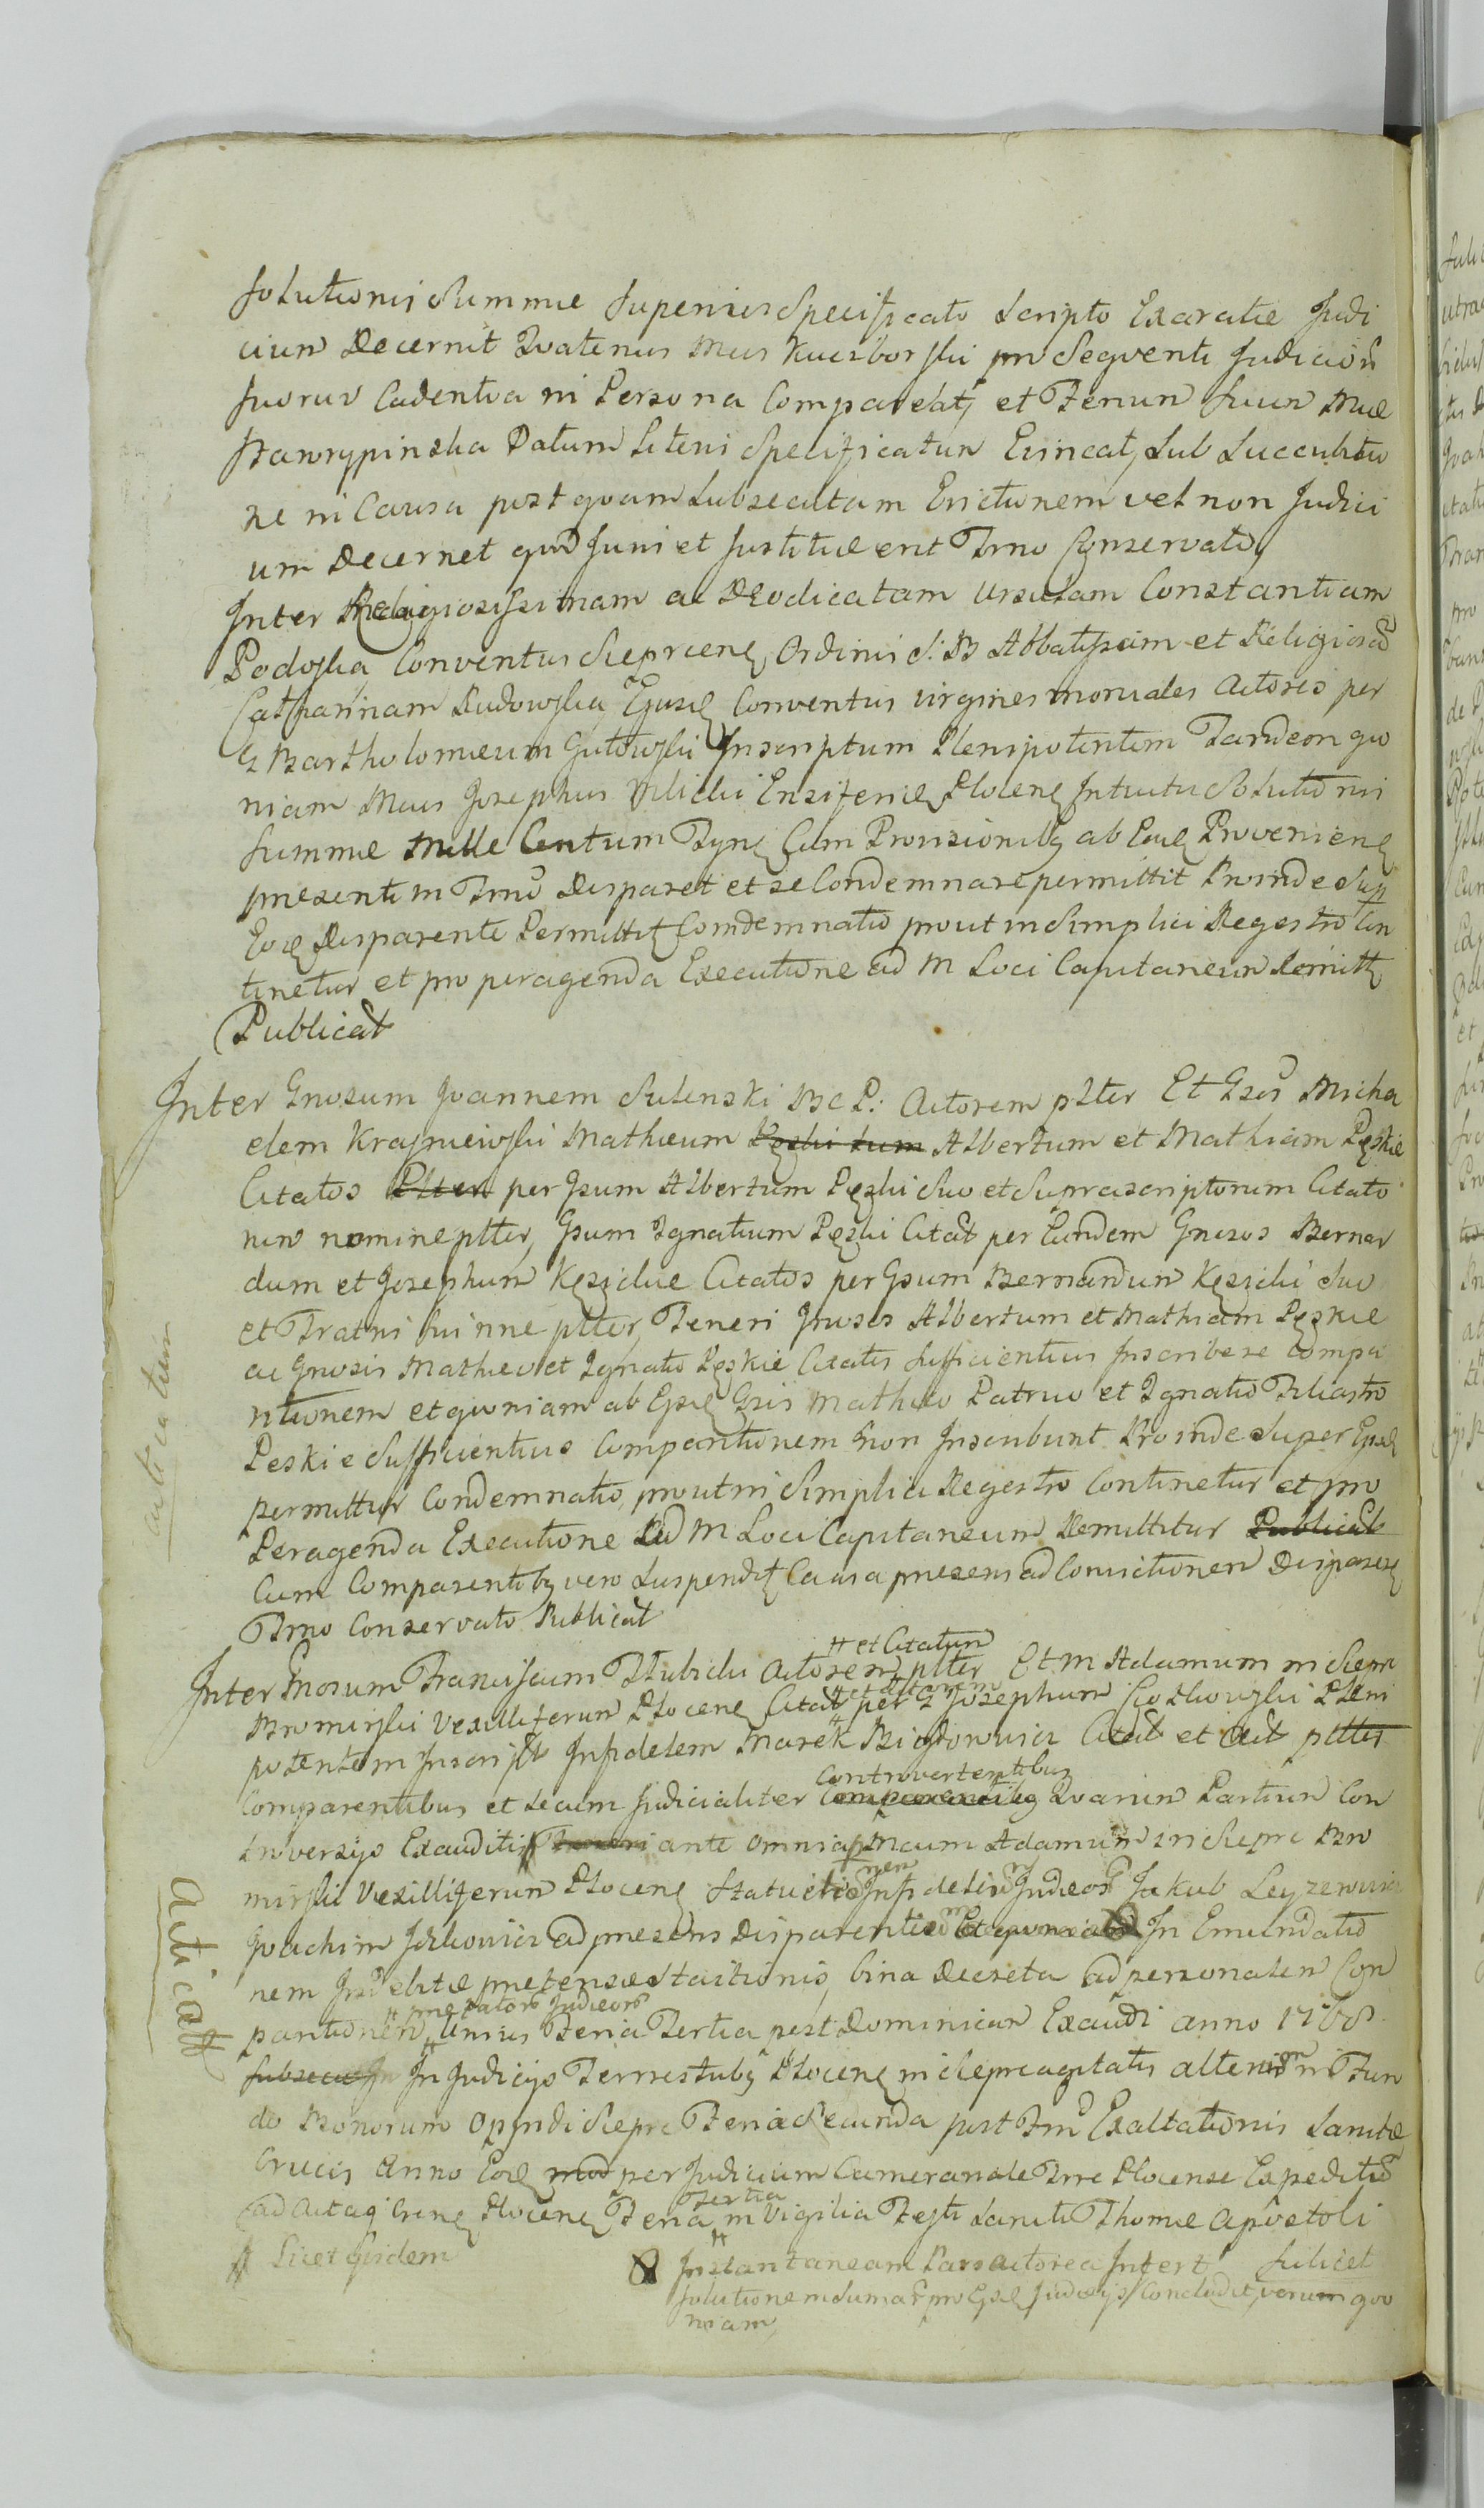 solutionis Summæ Superius Specificato Scripto Exaratæ Judi
cium Decernit Quatenus Mcus Kuczborski pro Sequenti Judicior
suorum Cadentia in Persona Compareat et Ferium Suum Mcæ
Skawrypinska Datum Literis Specificatum Evincat, Sub Succubitu
ne in Causa post quam Subsecutam Evictionem vel non Judici
um Decernet quid Juris et Justitiæ erit Trno Conservato,
Inter Religiosissimam ac Deodicatam Ursulam Constantiam
Podoska Conventus Sieprcens Ordinis S: B Abbatissam et Religiosas
Catharinam Rudowska Ejusd Conventus virgines moniales Actores per
G Bartholomæum Gutowski Inscriptum Plenipotentem Tandem quo
niam Mcus Josephus Vilicki Ensiferie Plocens Intuitu Solutionis
Summæ Mille Centum Tyns Cum Provisionibq ab Ead Proveniens
presenti in Trno Disparet et se Condemnare permittit Proinde Sup
Eod Disparente Permittit Comdemnatio prout in Simplici Regestro Con
tinetur et pro peragenda Executione ad M Loci Capitaneum Remitt
Publicat
Inter Gnosum Joannem Sulenski B C P: Actorem plter Et Gsos Micha
elem Krajniewski Mathæum Pęski tum Albertum et Mathiam Pęskie
Citatos Plter per Gsum Albertum Pęski Suo et Suprascriptorum Citato
rum nomine plter, Gsum Ignatium Pęski Citat per Eundem Gnosos Bernar
dum et Josephum Kęsickie Citatos per Gsum Bernardum Kęsicki Suo
et Fratris Sui nne plter, Teneri Gnosos Albertum et Mathiam Pęskie
ac Gnosis Mathæo et Ignatio Pęskie Citatis Sufficientius Inscribere Compa
ritionem et quoniam ab Ejsd Gsis Mathæo Patruo et Ignatio Filiastro
Peskie Sufficientius Comparitionem non Inscribunt Proinde Super Ejsd
permittitur Condemnatio, prout in Simplici Regestro Continetur et pro
Peragenda Executione Ad M Loci Capitaneum Remittitur Publicat
Cum Comparentibq vero Suspendit Causa presens ad Convictionem Disparens
Trno Conservato Publicat
# et Citatum
Inter Gnosum Franciscum Dłubicki Actorem plter Et M Adamum in Siepre
# et Actorem
Bromirski Vexilliferum Plocens Citat per G Josephum Gozkowski Pleni
potentem Inscript Infidelem Marek Citat et Act plter
Controvertentibus
Comparentibus et Secum Judicialiter Comparentibq Quarum Partium Con
troversijs Exauditis Teneri ante omnia Mcum Adamum in Siepre Bro
mirski Vexilliferum Plocens Statuere Infidelem Judeos Jakub Leyzerowicz
Joachim Jckowicz ad presens Disparentes Et quoniam In Emundatio
nem Indebitæ pretensæ Stationis, bina Decreta ad personalem Com
# prefatorum Judeorum
paritionem Unius Feria Tertia post Dominicam Exaudi anno 1768
Subsecut In In Judicijs Terrestribq Plocens in Siepre agitatis alterius in Fun
do Bonorum Oppidi Siepre Feria Secunda post Fm Exaltationis Sanctæ
Crucis Anno Eod mod per Judicium Camerarale Trre Plocense Expeditis
tertia
ad Acta Crens Plocens Feria in Vigilia Festi Sancti Thomæ Apostoli
# Licet quidem
Instantaneam Pars Actorea Infert Scilicet
Solutionem Summar pro Ejsd Judæijs Concludit, verum quo
niam
acticatum
Acticatt